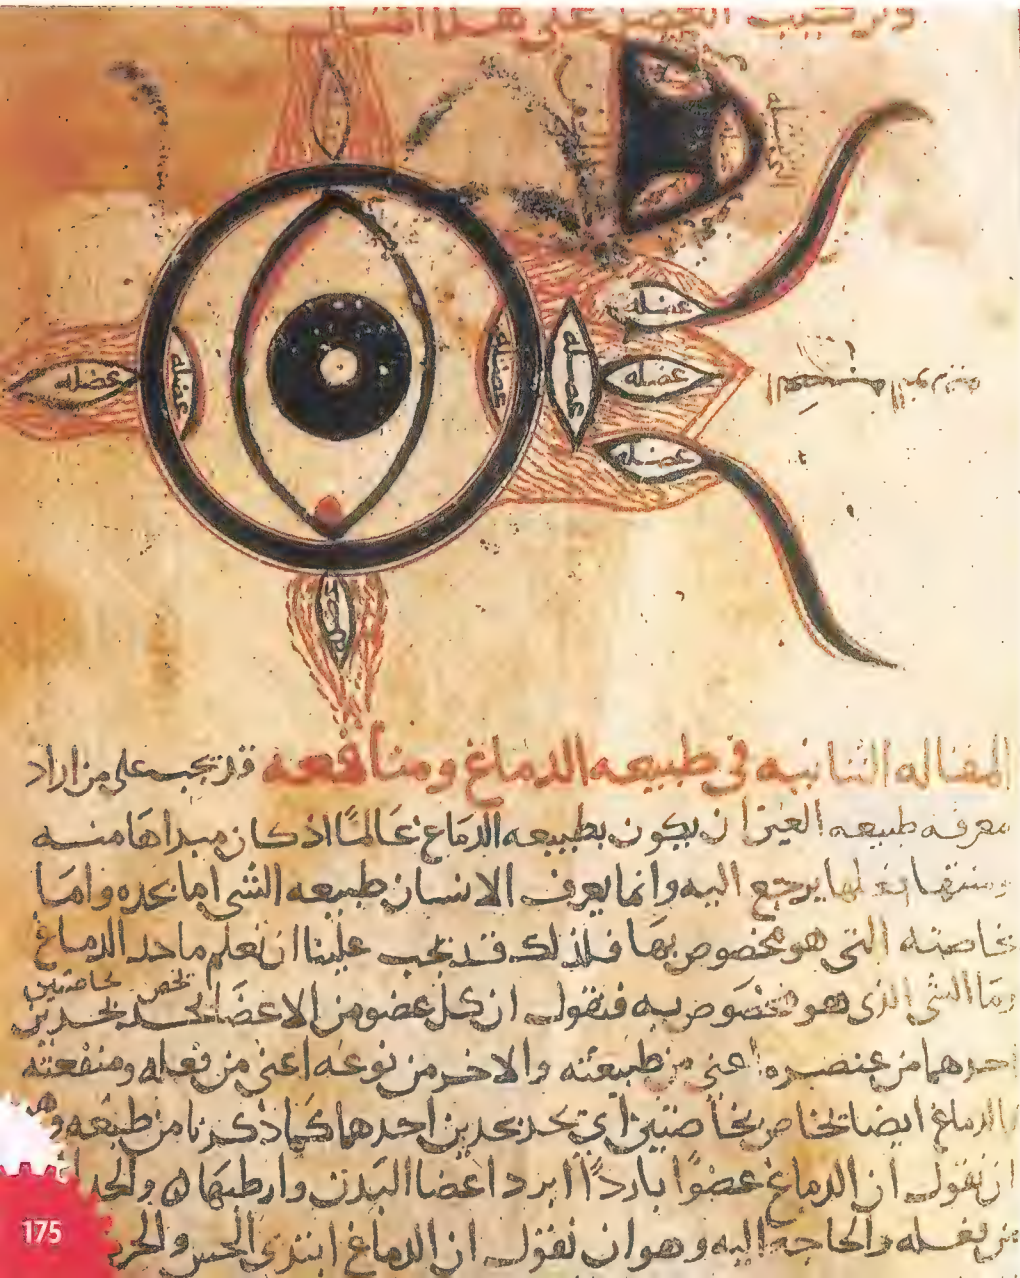 وتركيب العضل على هذا المثال
عضله
عضله
عضله
عضله
عضله
عضله
عضله
عضله
المقاله الثانيه في طبيعه الدماغ ومنافعه قد يجب على من اراد
معرفه طبيعه العين ان يكون بطبيعه الدماغ عالمًا اذ كان مبداها منه
ومنتهى لها يرجع اليه وانما يعرف الانسان طبيعه الشي اما بحده واما
بخاصته التي هو مخصوص بها فلذلك قد يجب علينا ان نعلم ما حد الدماغ
وما الشي الذي هو مخصوص به فنقول ان كل عضو من الاعضا يحد بحدين
يخص بخاصتين
احدهما من عنصره اعني من طبيعته والاخر من نوعه اعني من فعله ومنفعته
والدماغ ايضا بخاصتين اي يحد بحدين احدهما كما ذكرنا من طبعه وهو
ان نقول ان الدماغ عضوًا باردًا ابرد اعضا البدن وارطبها والحد
من فعله والحاجة اليه وهو ان نقول ان الدماغ ابتدى الحس والحر
175